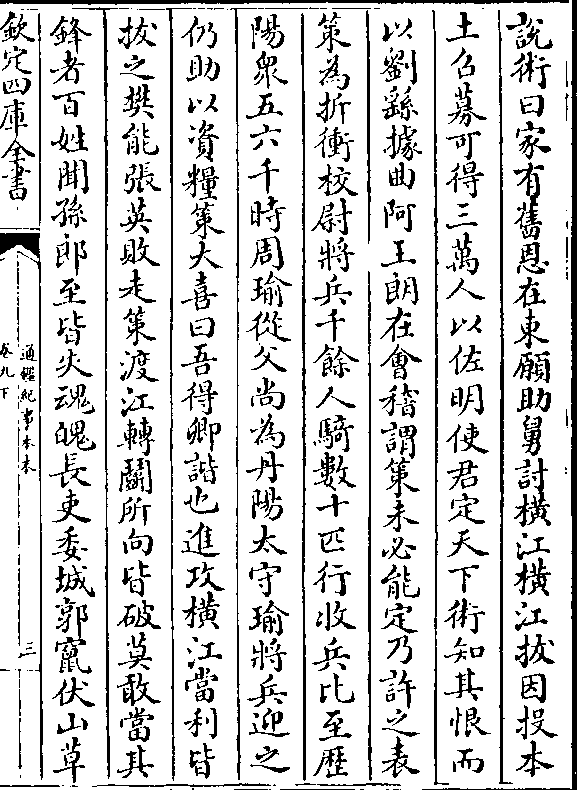 說術曰家有舊恩在東願助舅討橫江橫江拔因投本
土召募可得三萬人以佐明使君定天下術知其恨而
以劉繇據曲阿王朗在會稽謂策未必能定乃許之表
策為折衝校尉將兵千餘人騎數十匹行收兵比至歷
陽衆五六千時周瑜從父尚為丹陽太守瑜將兵迎之
仍助以資糧策大喜曰吾得卿諧也進攻橫江當利皆
拔之樊能張英敗走策渡江轉鬭所向皆破莫敢當其
鋒者百姓聞孫郎至皆失魂魄長吏委城郭竄伏山草
欽定四庫全書
通鑑紀事本末
卷九下
三